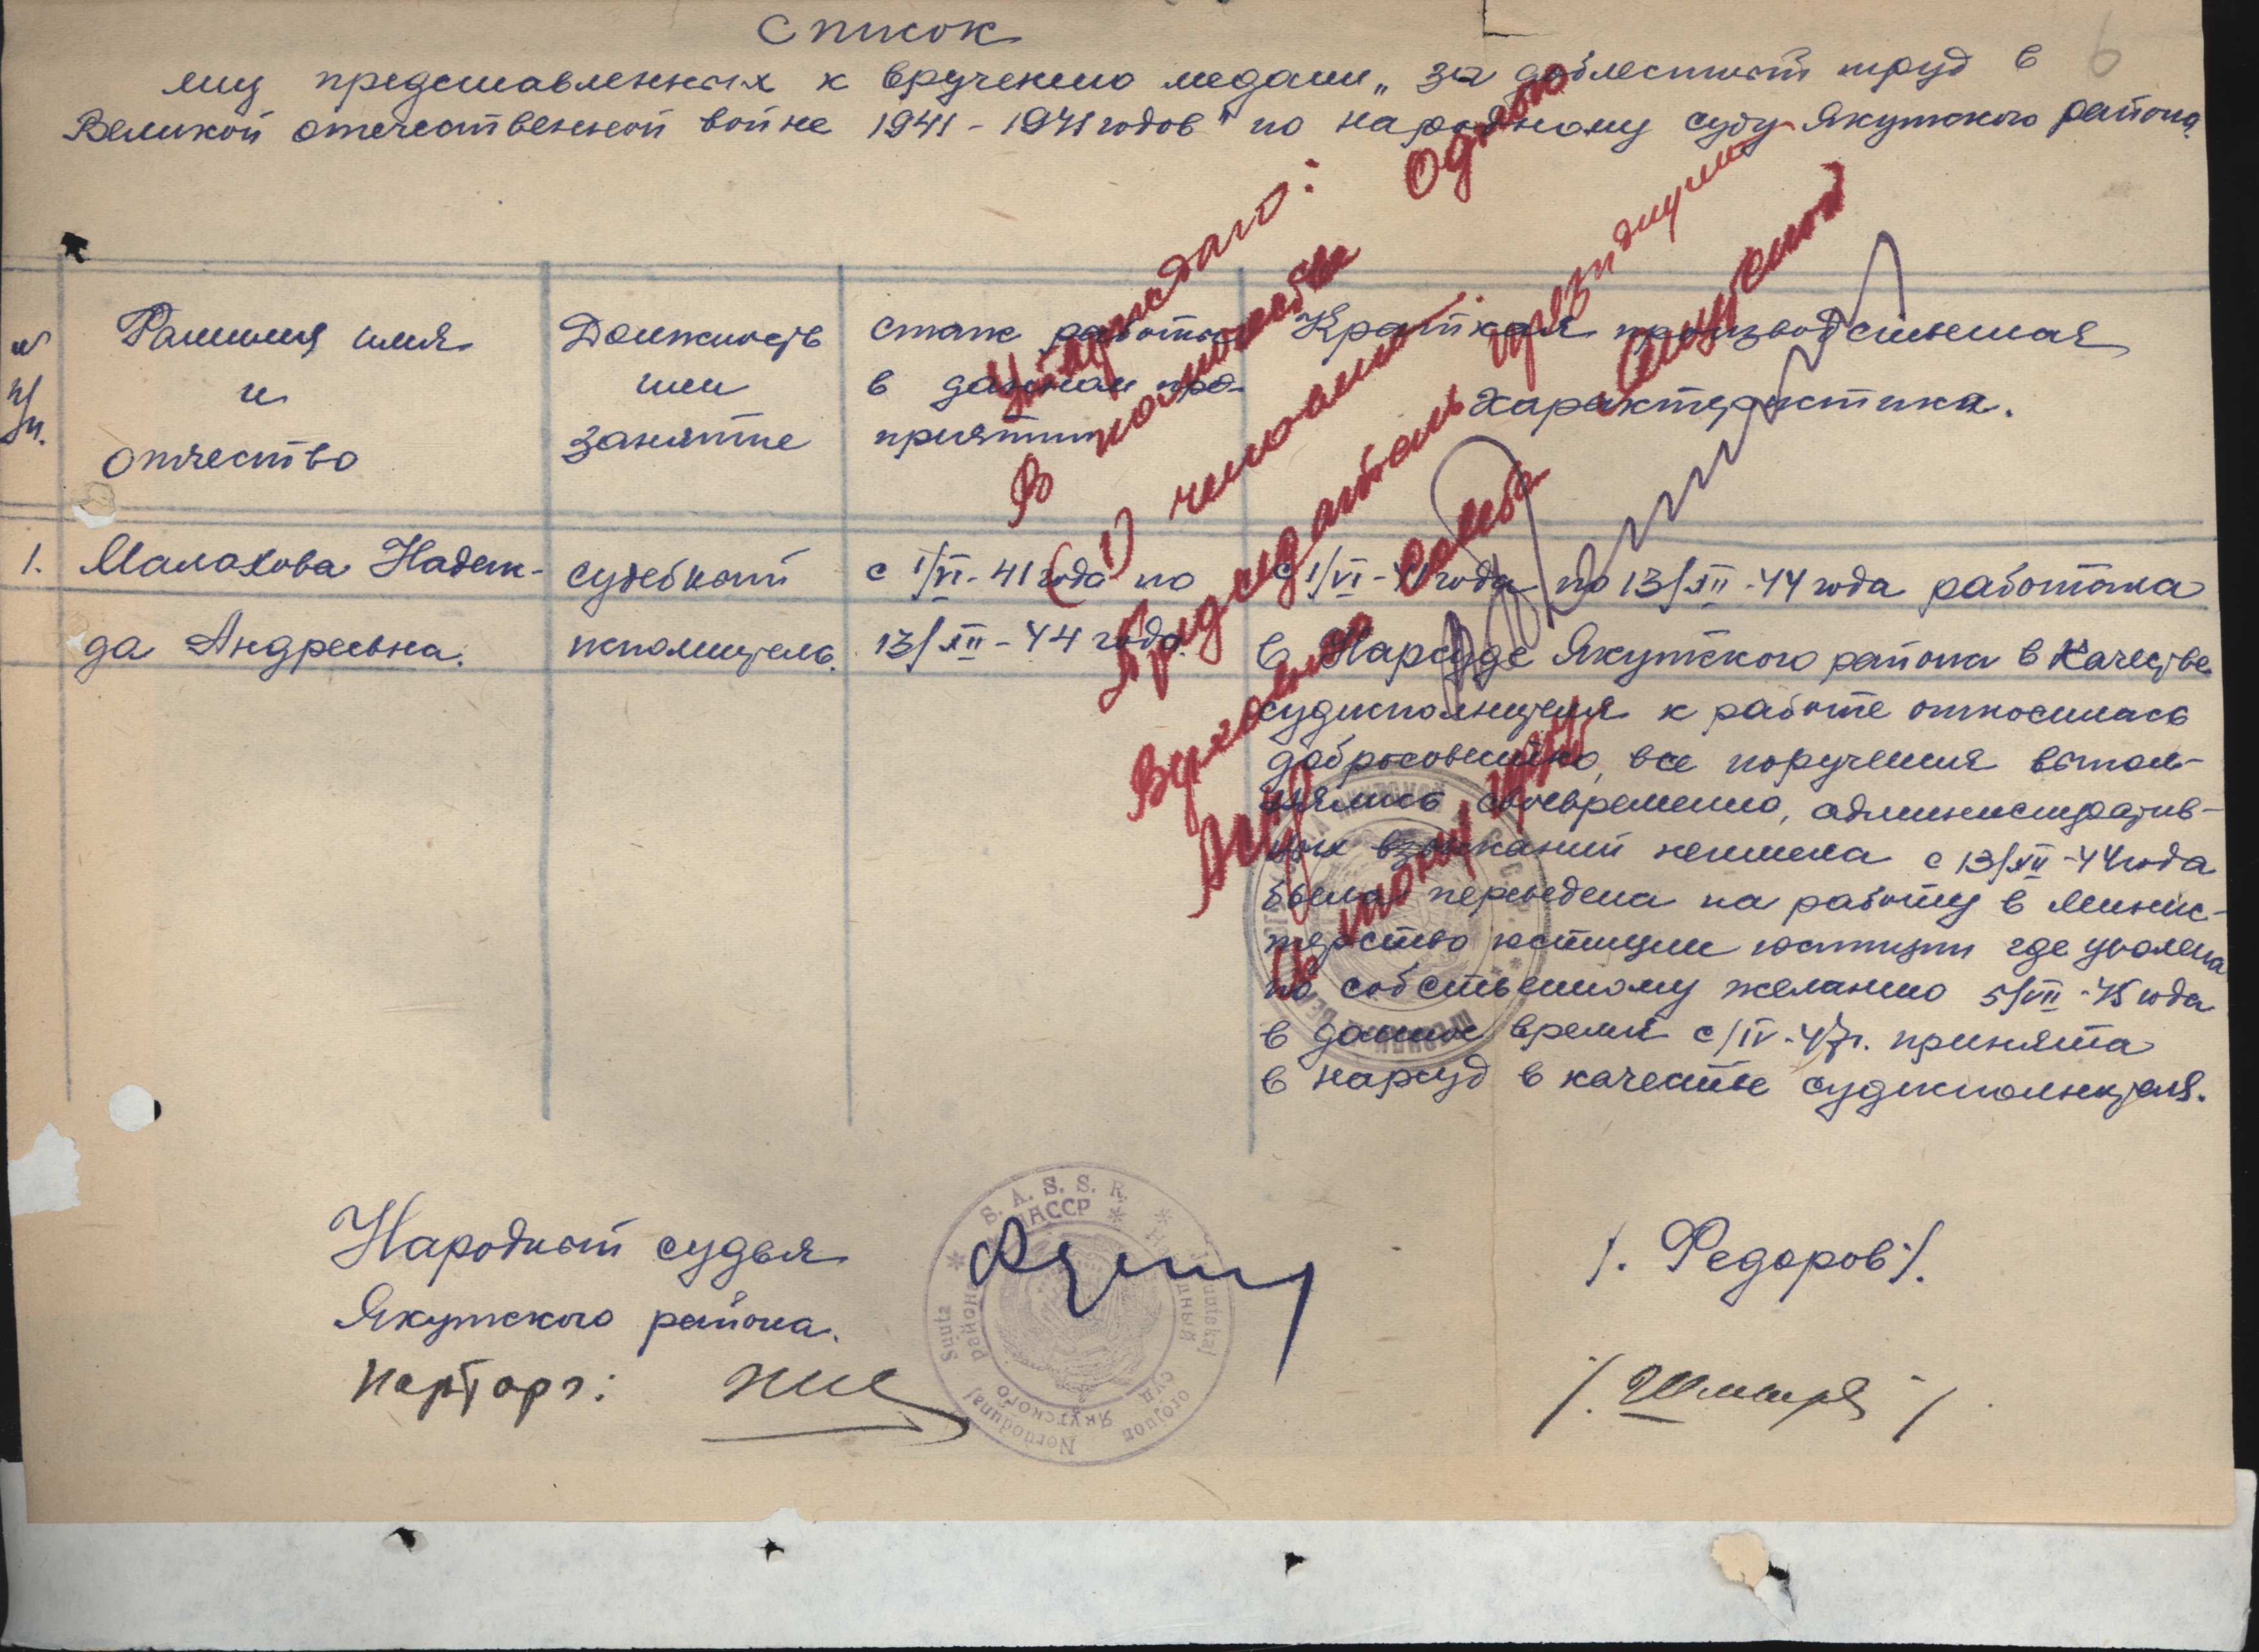 Список
лиц представленных к вручению медали „за доблестный труд в
Великой отечественной войне 1941-1941 годов" по народному суду Якутского района.
6
№ п/п.
Фамилия имя
и
отчество
Должность
или
занятие
стаж работы
в данном пред-
приятии
Краткая производственная
характеристика.
1.
Малахова Надеж-
да Андреевна.
судебный
исполнитель.
с 1/VI-41 года по
13/XII-44 года.
с 1/VI-41 года по 13/XII-44 года работала
в Нарсуде Якутского района в качестве
судисполнителя к работе относилась
добросовестно, все поручения выпол-
нялись своевременно, административ-
ных взысканий неимела с 13/XII-44 года
была переведена на работу в Минис-
терство юстиции юстиции где уволена
по собственному желанию 5/VII-45 года
в данное время с/IV-47г. принята
в нарсуд в качестве судисполнителя.
Утверждаю:
В количестве Одного
(1) человека.
Председатель президиума
Верховного Совета
ЯАССР
Народный судья
Якутского района.
/. Федоров /.
Парторг:
S. A. S. S. R.
ЯАССР
Народный суд Якутского района